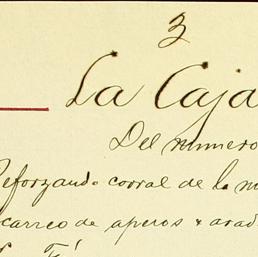 3
La Caja
Del numero
Reforzando corral de la m
carreo de aperos & arad